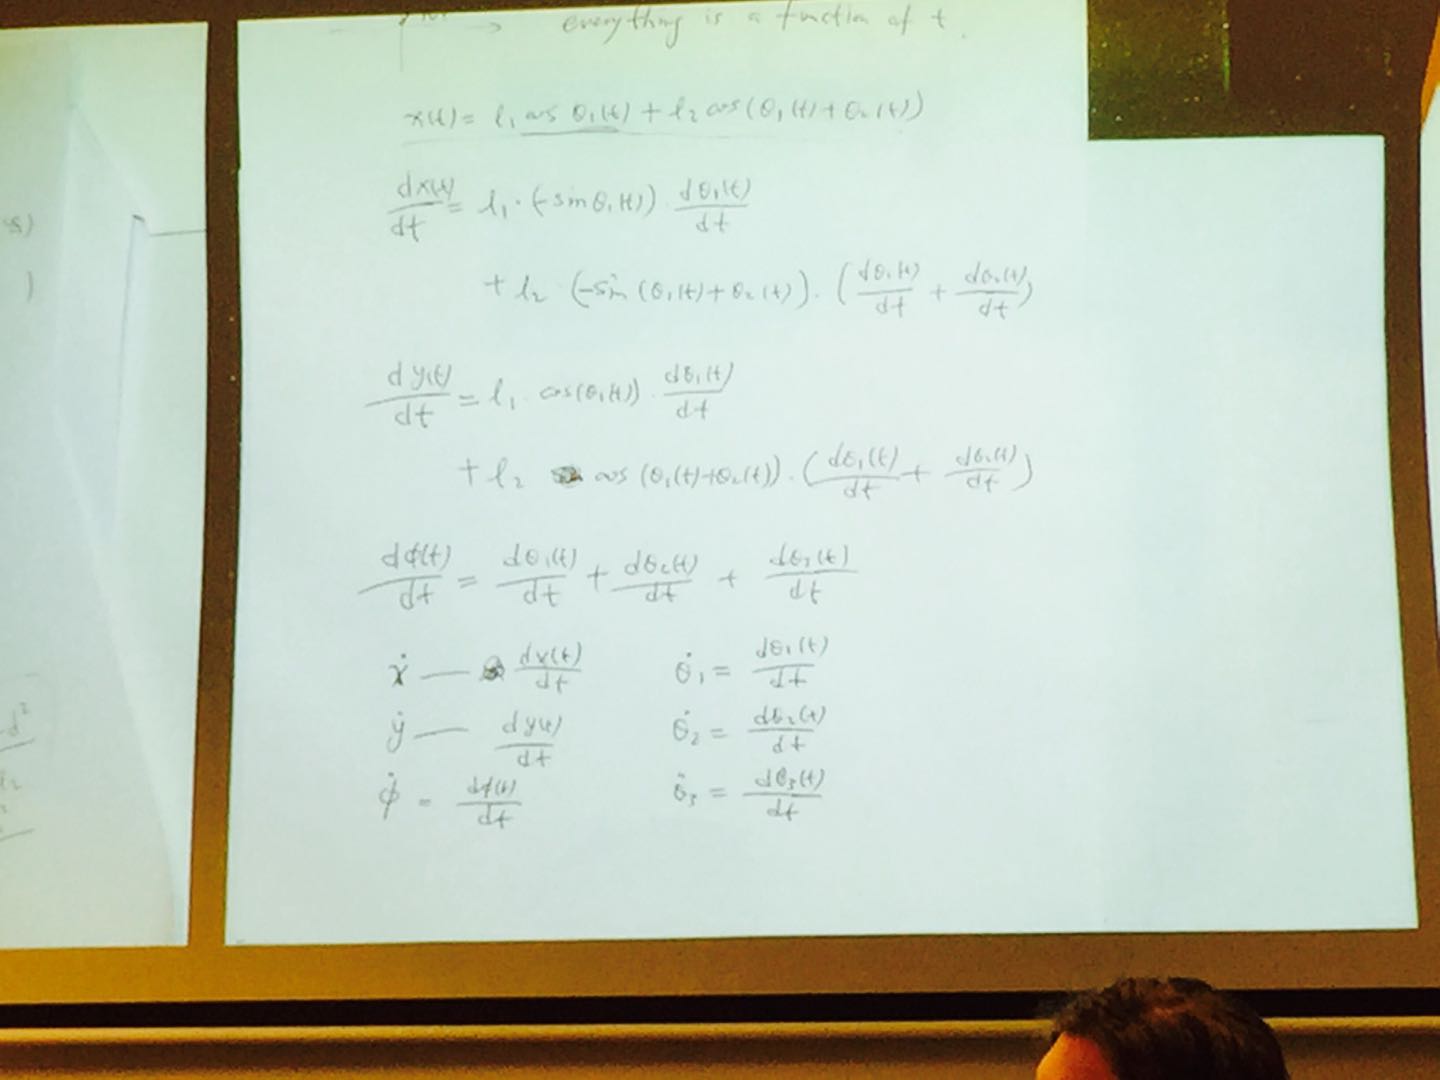 everything is a function of t.
x(t) = l₁ cos θ₁(t) + l₂ cos (θ₁(t) + θ₂(t))
dx(t)/dt = l₁ · (-sin θ₁(t)) · dθ₁(t)/dt
+ l₂ (-sin (θ₁(t) + θ₂(t)) · (dθ₁(t)/dt + dθ₂(t)/dt)
dy(t)/dt = l₁ · cos(θ₁(t)) · dθ₁(t)/dt
+ l₂ cos (θ₁(t)+θ₂(t)) · (dθ₁(t)/dt + dθ₂(t)/dt)
dϕ(t)/dt = dθ₁(t)/dt + dθ₂(t)/dt + dθ₃(t)/dt
ẋ — dx(t)/dt θ̇₁ = dθ₁(t)/dt
ẏ — dy(t)/dt θ̇₂ = dθ₂(t)/dt
ϕ̇ = dϕ(t)/dt θ̇₃ = dθ₃(t)/dt